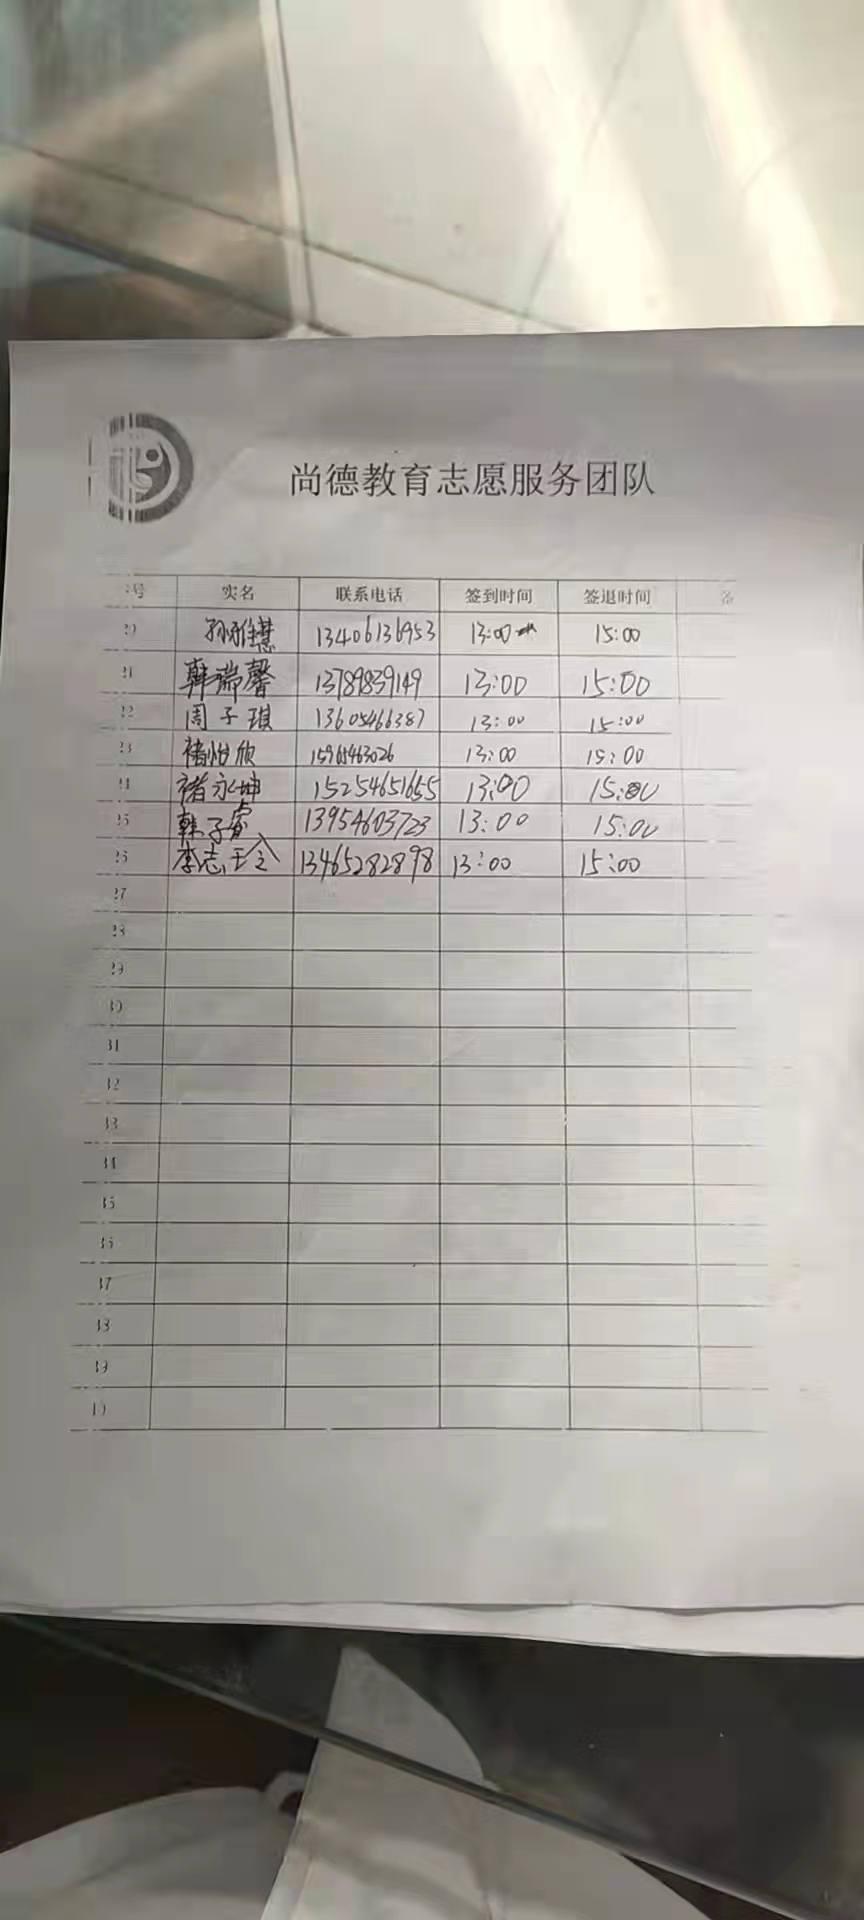 尚德教育志愿服务团队
号 实名 联系电话 签到时间 签退时间 备
20 孙雅慧 13406136953 13:00 15:00
21 韩瑞馨 13789839149 13:00 15:00
22 周子琪 13605466387 13:00 15:00
23 褚怡欣 15965463026 13:00 15:00
24 褚永坤 15254651655 13:00 15:00
25 韩子睿 13954603723 13:00 15:00
26 李志玲 13465282898 13:00 15:00
27
28
29
30
31
32
33
34
35
36
37
38
39
40